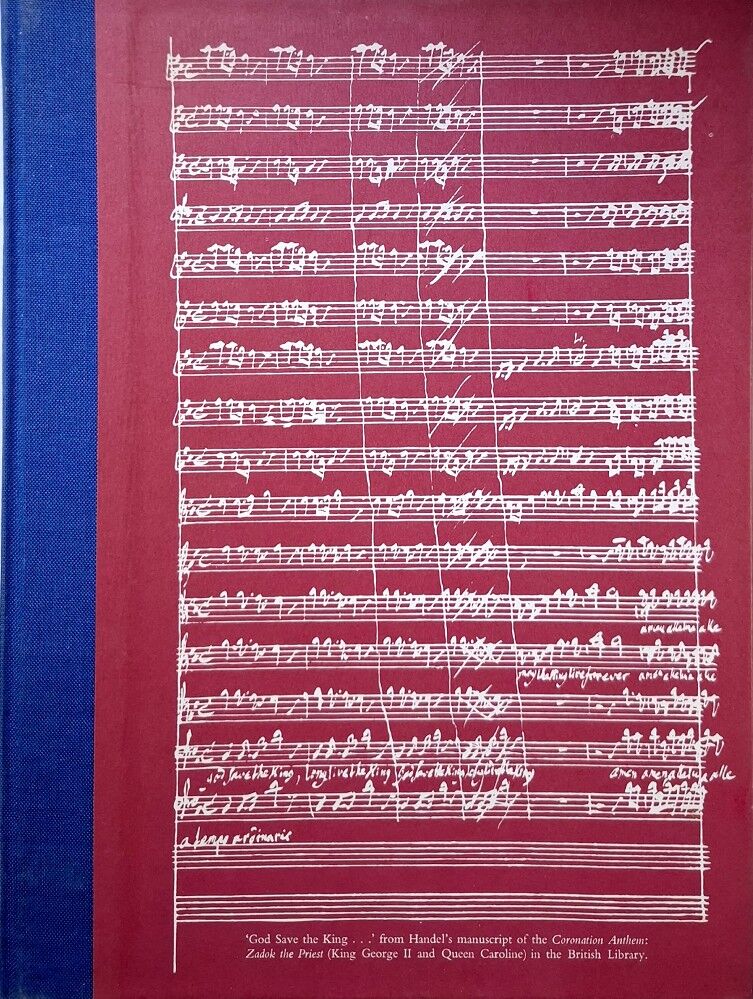 amen alleluia alle
may the King live for ever amen alleluia alle
God save the King, long live the King God save the King long live the King
amen amen alleluia alle
a tempo ordinario
‘God Save the King . . .’ from Handel’s manuscript of the Coronation Anthem:
Zadok the Priest (King George II and Queen Caroline) in the British Library.